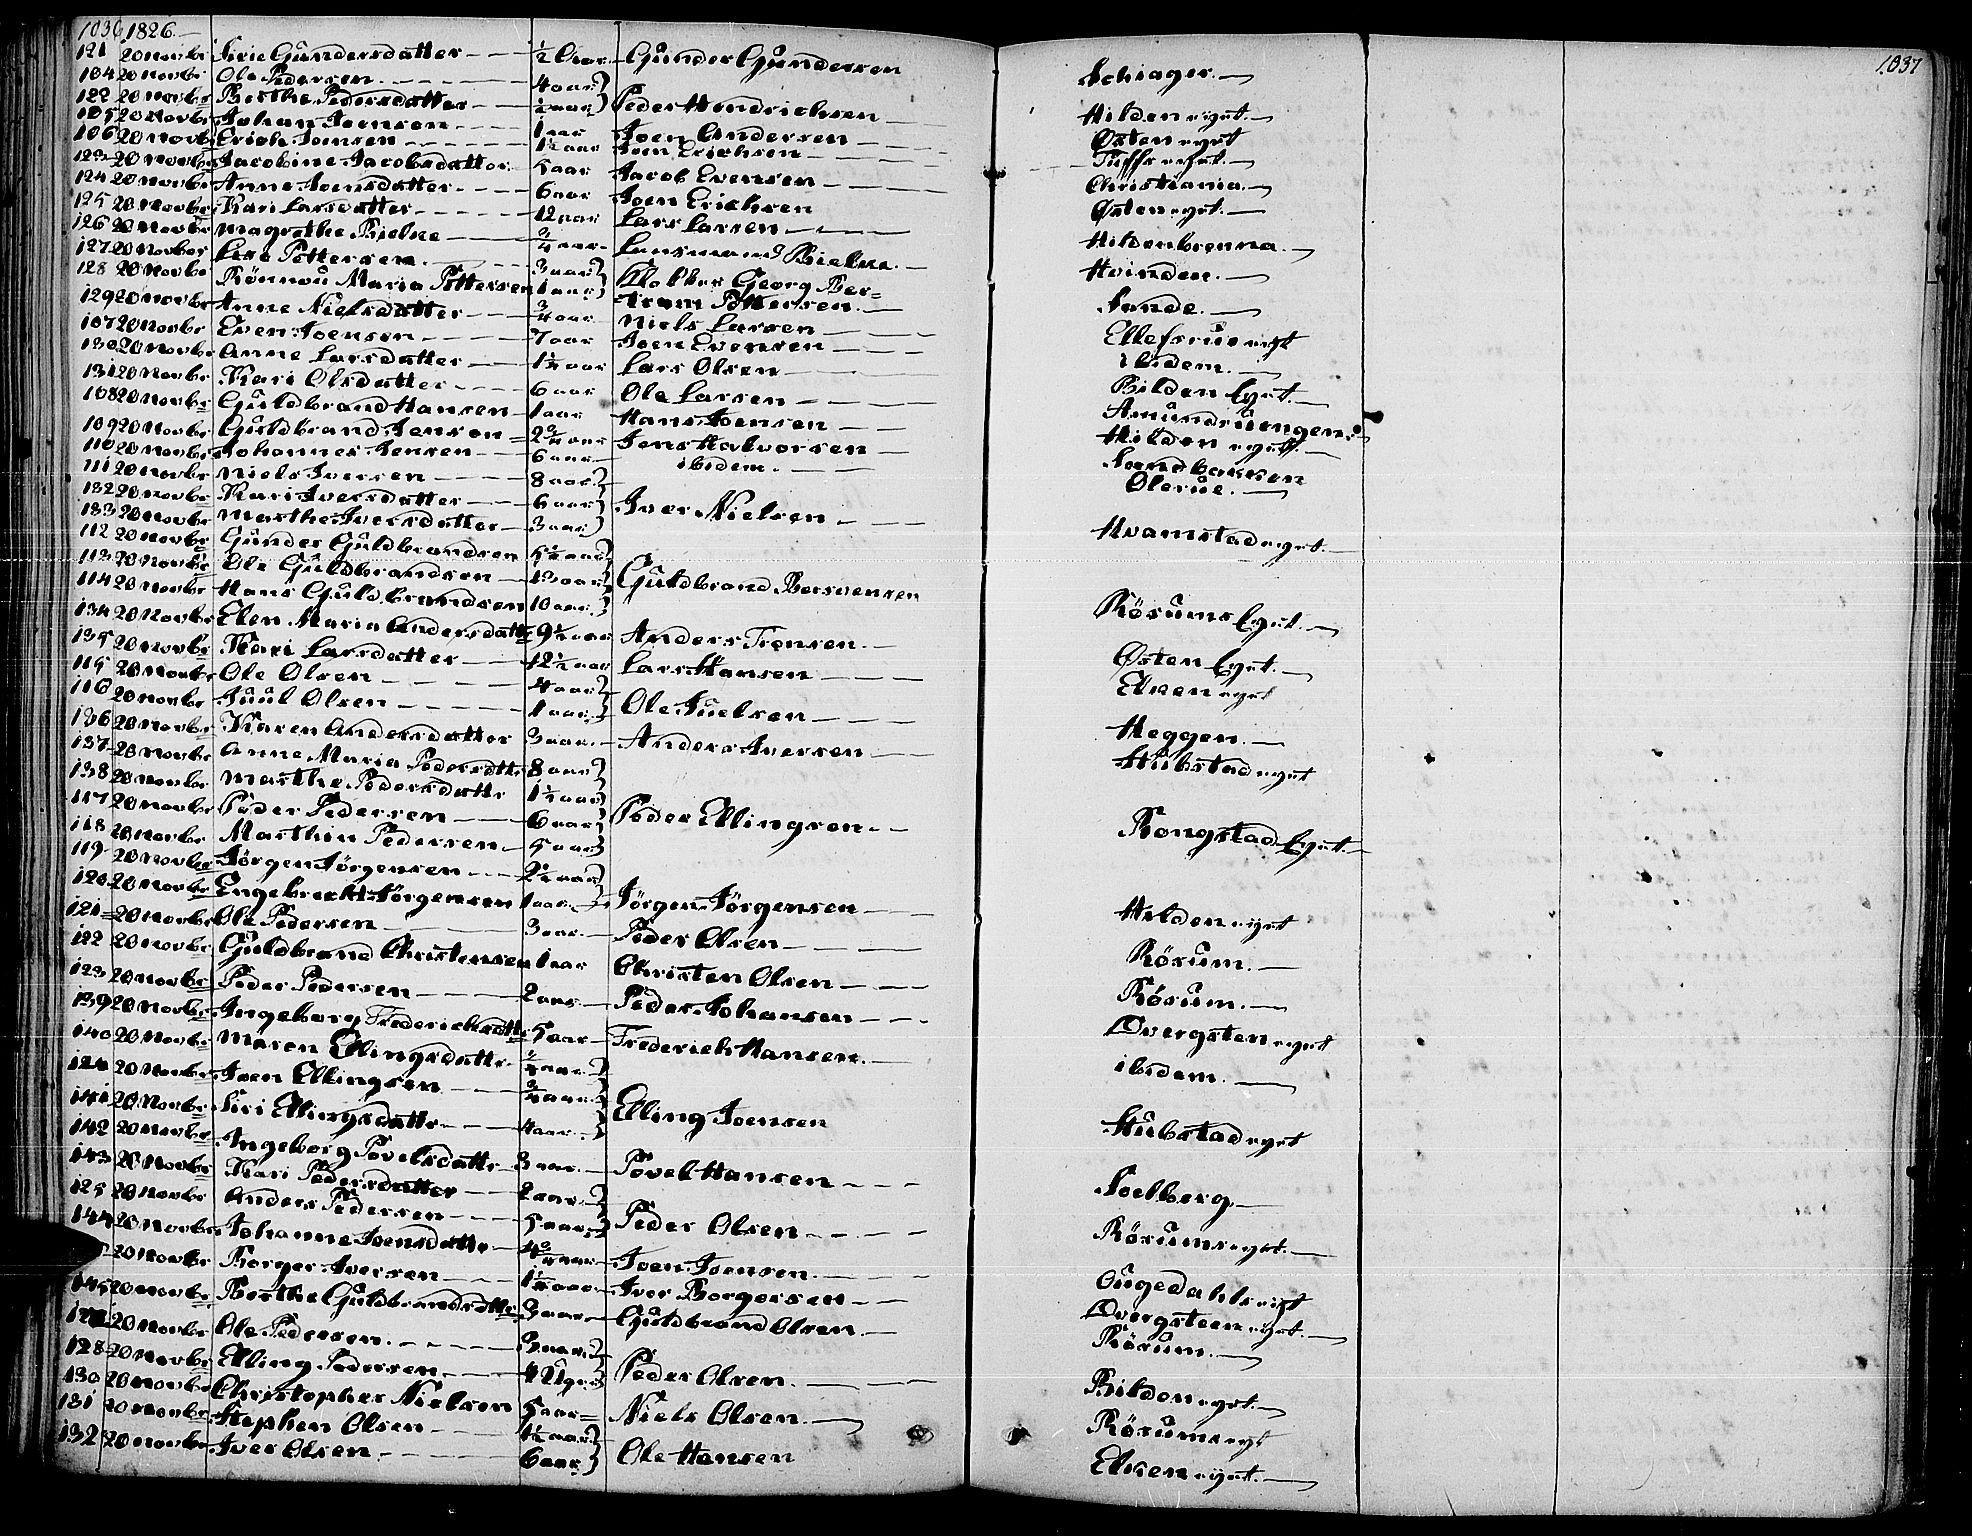 1036 1826.
121 20 Novbr Sirie Gundersdatter ½ Aar Gunder Gundersen Schiager.
104 20 Novbr Ole Pedersen 4 aar
122 20 Novbr Berthe Pedersdatter ½ aar Peder Hendrichsen Hilden eyet.
105 20 Novbr Johan Joensen 1 aar Joen Andersen Østen eyet
106 20 Novbr Erich Joensen 1½ aar Joen Erichsen eyet.
123 20 Novbr Jacobine Jacobsdatter 5 aar Jacob Evensen Christiania.
124 20 Novbr Anne Joensdatter 6 aar Joen Erichsen Østen eyet.
125 20 Novbr Kari Larsdatter 12 aar Lars Larsen Hildenbrenna.
126 20 Novbr Magrethe Bielke ¾ aar Lensmand Bielke. Hvinden.
127 20 Novbr Lise Pottersen. 3 aar
128 20 Novbr Rönnou Maria Pottersen 1 aar Klokker Georg Bertram Pottersen. Sande.
129 20 Novbr Anne Nielsdatter ¾ aar Niels Larsen Ellefsrue eyet
107 20 Novbr Even Joensen 7 aar Joen Evensen ibidem.
130 20 Novbr Anne Larsdatter 1½ aar Lars Olsen Bilden Eyet.
131 20 Novbr Kari Olsdatter 6 aar Ole Larsen Amundrüngen.
108 20 Novbr Guldbrand Hansen 1 aar Hans Joensen Hilden eyet.
109 20 Novbr Guldbrand Jensen 2¾ aar Jens Halvorsen Sandbakken
110 20 Novbr Johannes Jensen 6 aar ibidem. Olerüe.
111 20 Novbr Niels Iversen 8 aar
132 20 Novbr Kari Iversdatter 6 aar Iver Nielsen Hvamstad eyet.
133 20 Novbr Marthe Iversdatter 3 aar
112 20 Novbr Gunder Guldbrandsen aar
113 20 Novbr Ole Guldbrandsen 13 aar Guldbrand Børsvensen Røsums Eyet.
114 20 Novbr Hans Guldbrandsen 10 aar
134 20 Novbr Elen Maria Andersdattr 9½ aar Anders Tronsen. Østen Eyet.
135 20 Novbr Kari Larsdatter 12½ aar Lars Hansen Elken eyet
115 20 Novbr Ole Olsen 4 aar
116 20 Novbr Juul Olsen 1 aar Ole Juelsen Heggen.
136 20 Novbr Karen Andersdatter 3 aar Anders Iversen Stubstad eyet
137 20 Novbr Anne Maria Pedersdattr 8 aar
138 20 Novbr Marthe Pedersdattr 1½ aar
117 20 Novbr Peder Pedersen 6 aar Peder Ellingsen Rongstad Eyet.
118 20 Novbr Marthin Pedersen 5 aar
119 20 Novbr Jörgen Jörgensen 2½ aar
120 20 Novbr Engebrecht Jörgensen 1 aar Jörgen Jörgensen Hilden eyet
121 20 Novbr Ole Pedersen 3 aar Peder Olsen Røsum.
122 20 Novbr Guldbrand Christensen 1 aar Christen Olsen Røsum.
123 20 Novbr Peder Pedersen 2 aar Peder Johansen Dvergsten eyet
139 20 Novbr Ingeborg Frederichsdattr 5 aar Frederich Hansen. ibidem.
140 20 Novbr Maren Ellingsdattr aar
124 20 Novbr Joen Ellingsen aar Elling Joensen Stubstad eyet
141 20 Novbr Siri Ellingsdattr 4 aar
142 20 Novbr Ingeborg Povelsdattr 3 aar Povel Hansen Soelberg.
143 20 Novbr Kari Pedersdatter 2 aar
125 20 Novbr Anders Pedersen 5 aar Peder Olsen Røsums eyet.
144 20 Novbr Johanne Joensdattr 4¾ aar Joen Joensen.
20 Novbr Borger Iversen 1¼ aar Iver Borgersen Dvergsteen eyet.
145 20 Novbr Berthe Guldbrandsdattr 3 aar Guldbrand Olsen Røsum.
20 Novbr Ole Pedersen. 3 aar
128 20 Novbr Elling Pedersen. 4 Uger Peder Olsen Bilden eyet.
130 20 Novbr Christopher Nielsen 5 aar Niels Olsen. Røsums eyet
131 20 Novbr Stephen Olsen 1½ aar
132 20 Novbr Iver Olsen 6 aar Ole Hansen Elken eyet.
1037